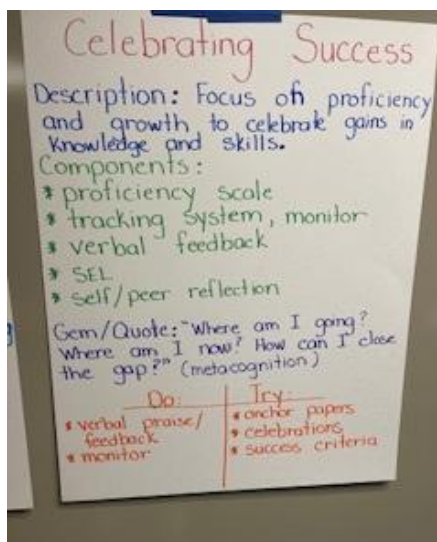 Celebrating Success
Description: Focus on proficiency
and growth to celebrate gains in
knowledge and skills.
Components:
* proficiency scale
* tracking system, monitor
* verbal feedback
* SEL
* self/peer reflection
Gem/Quote: "Where am I going?
Where am I now? How can I close
the gap?" (metacognition)
Do:
* verbal praise/
feedback
* monitor
Try:
* anchor papers
* celebrations
* success criteria